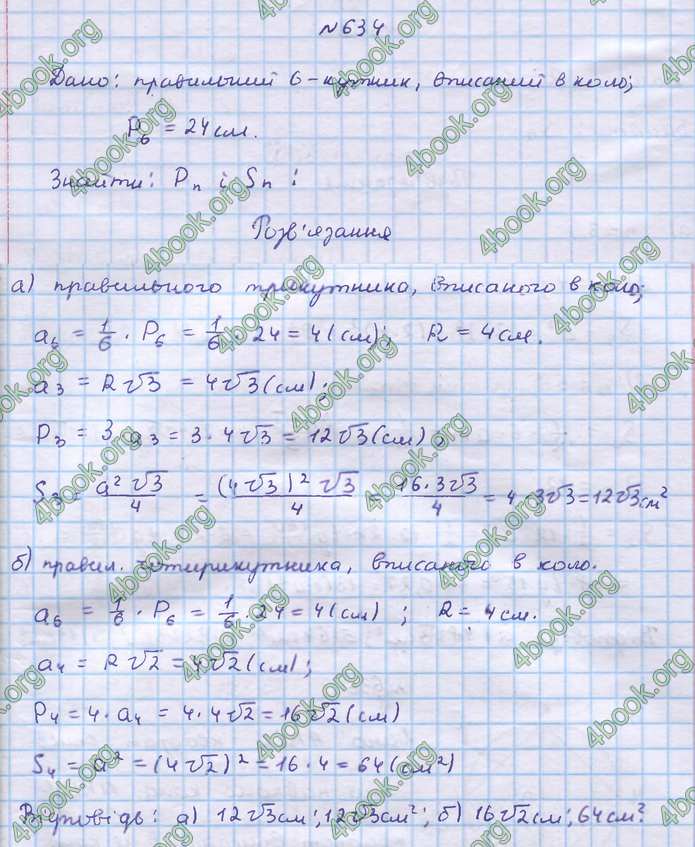 №634
Дано: правильний 6-кутник, вписаний в коло;
P₆ = 24 см.
Знайти: Pₙ і Sₙ :
Розв'язання
а) правильного трикутника, вписаного в коло;
a₆ = 1/6 · P₆ = 1/6 · 24 = 4(см); R = 4 см.
a₃ = R√3 = 4√3 (см);
P₃ = 3 · a₃ = 3 · 4√3 = 12√3 (см);
S₃ = a²√3/4 = (4√3)²√3/4 = 16·3√3/4 = 4 · 3√3 = 12√3 см²
б) правил. чотирикутника, вписаного в коло.
a₆ = 1/6 · P₆ = 1/6 · 24 = 4(см); R = 4 см.
a₄ = R√2 = 4√2 (см);
P₄ = 4 · a₄ = 4 · 4√2 = 16√2 (см)
S₄ = a² = (4√2)² = 16 · 4 = 64 (см²)
Відповідь: а) 12√3 см; 12√3 см²; б) 16√2 см; 64 см².
4book.org